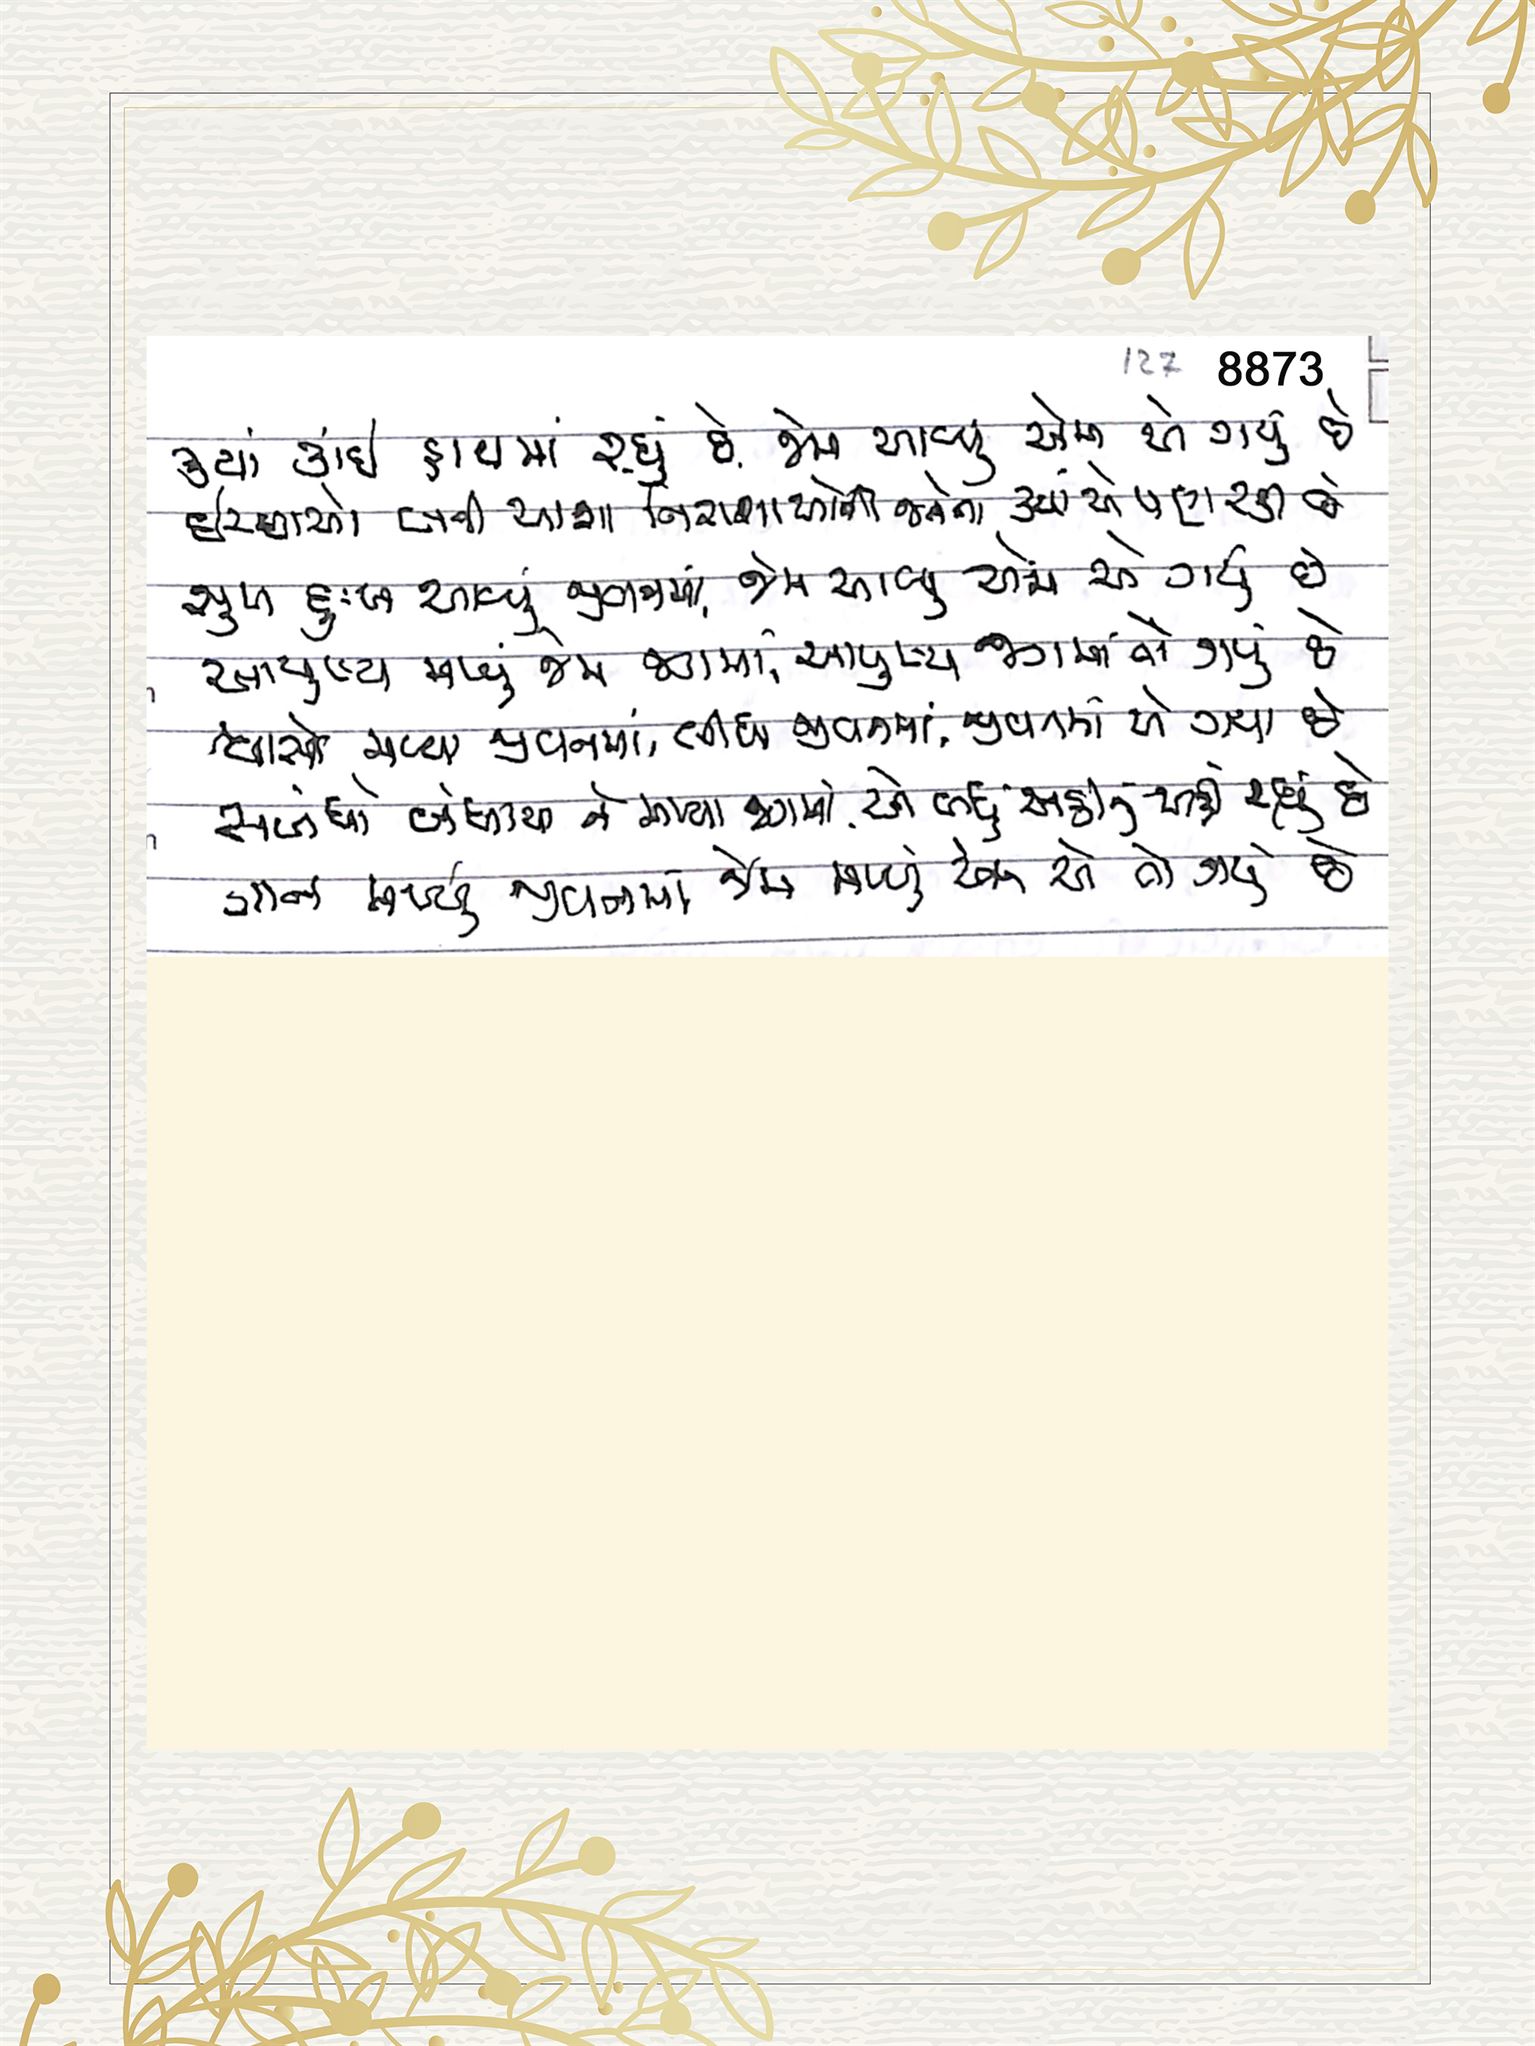 127 8873
ક્યાં કાંઈ હાથમાં રહ્યું છે, જેમ આવ્યું એમ એ ગયું છે
ઈચ્છાઓ બની આશા નિરાશાઓની જનેતા ક્યાં એ પણ રહી છે
સુખ દુઃખ આવ્યું જીવનમાં, જેમ આવ્યું એમ એ ગયું છે
આયુષ્ય મળ્યું જેમ જગમાં, આયુષ્ય જગમાં વીતી ગયું છે
શ્વાસો મળ્યા જીવનમાં, લીધા જીવનમાં, જીવનમાં એ ગયા છે
સબંધો બંધાયા ને મળ્યા જગમાં, એ બધું અહીંનું અહીં રહ્યું છે
માન મળ્યું જીવનમાં જેમ મળ્યું એમ એ તો ગયું છે